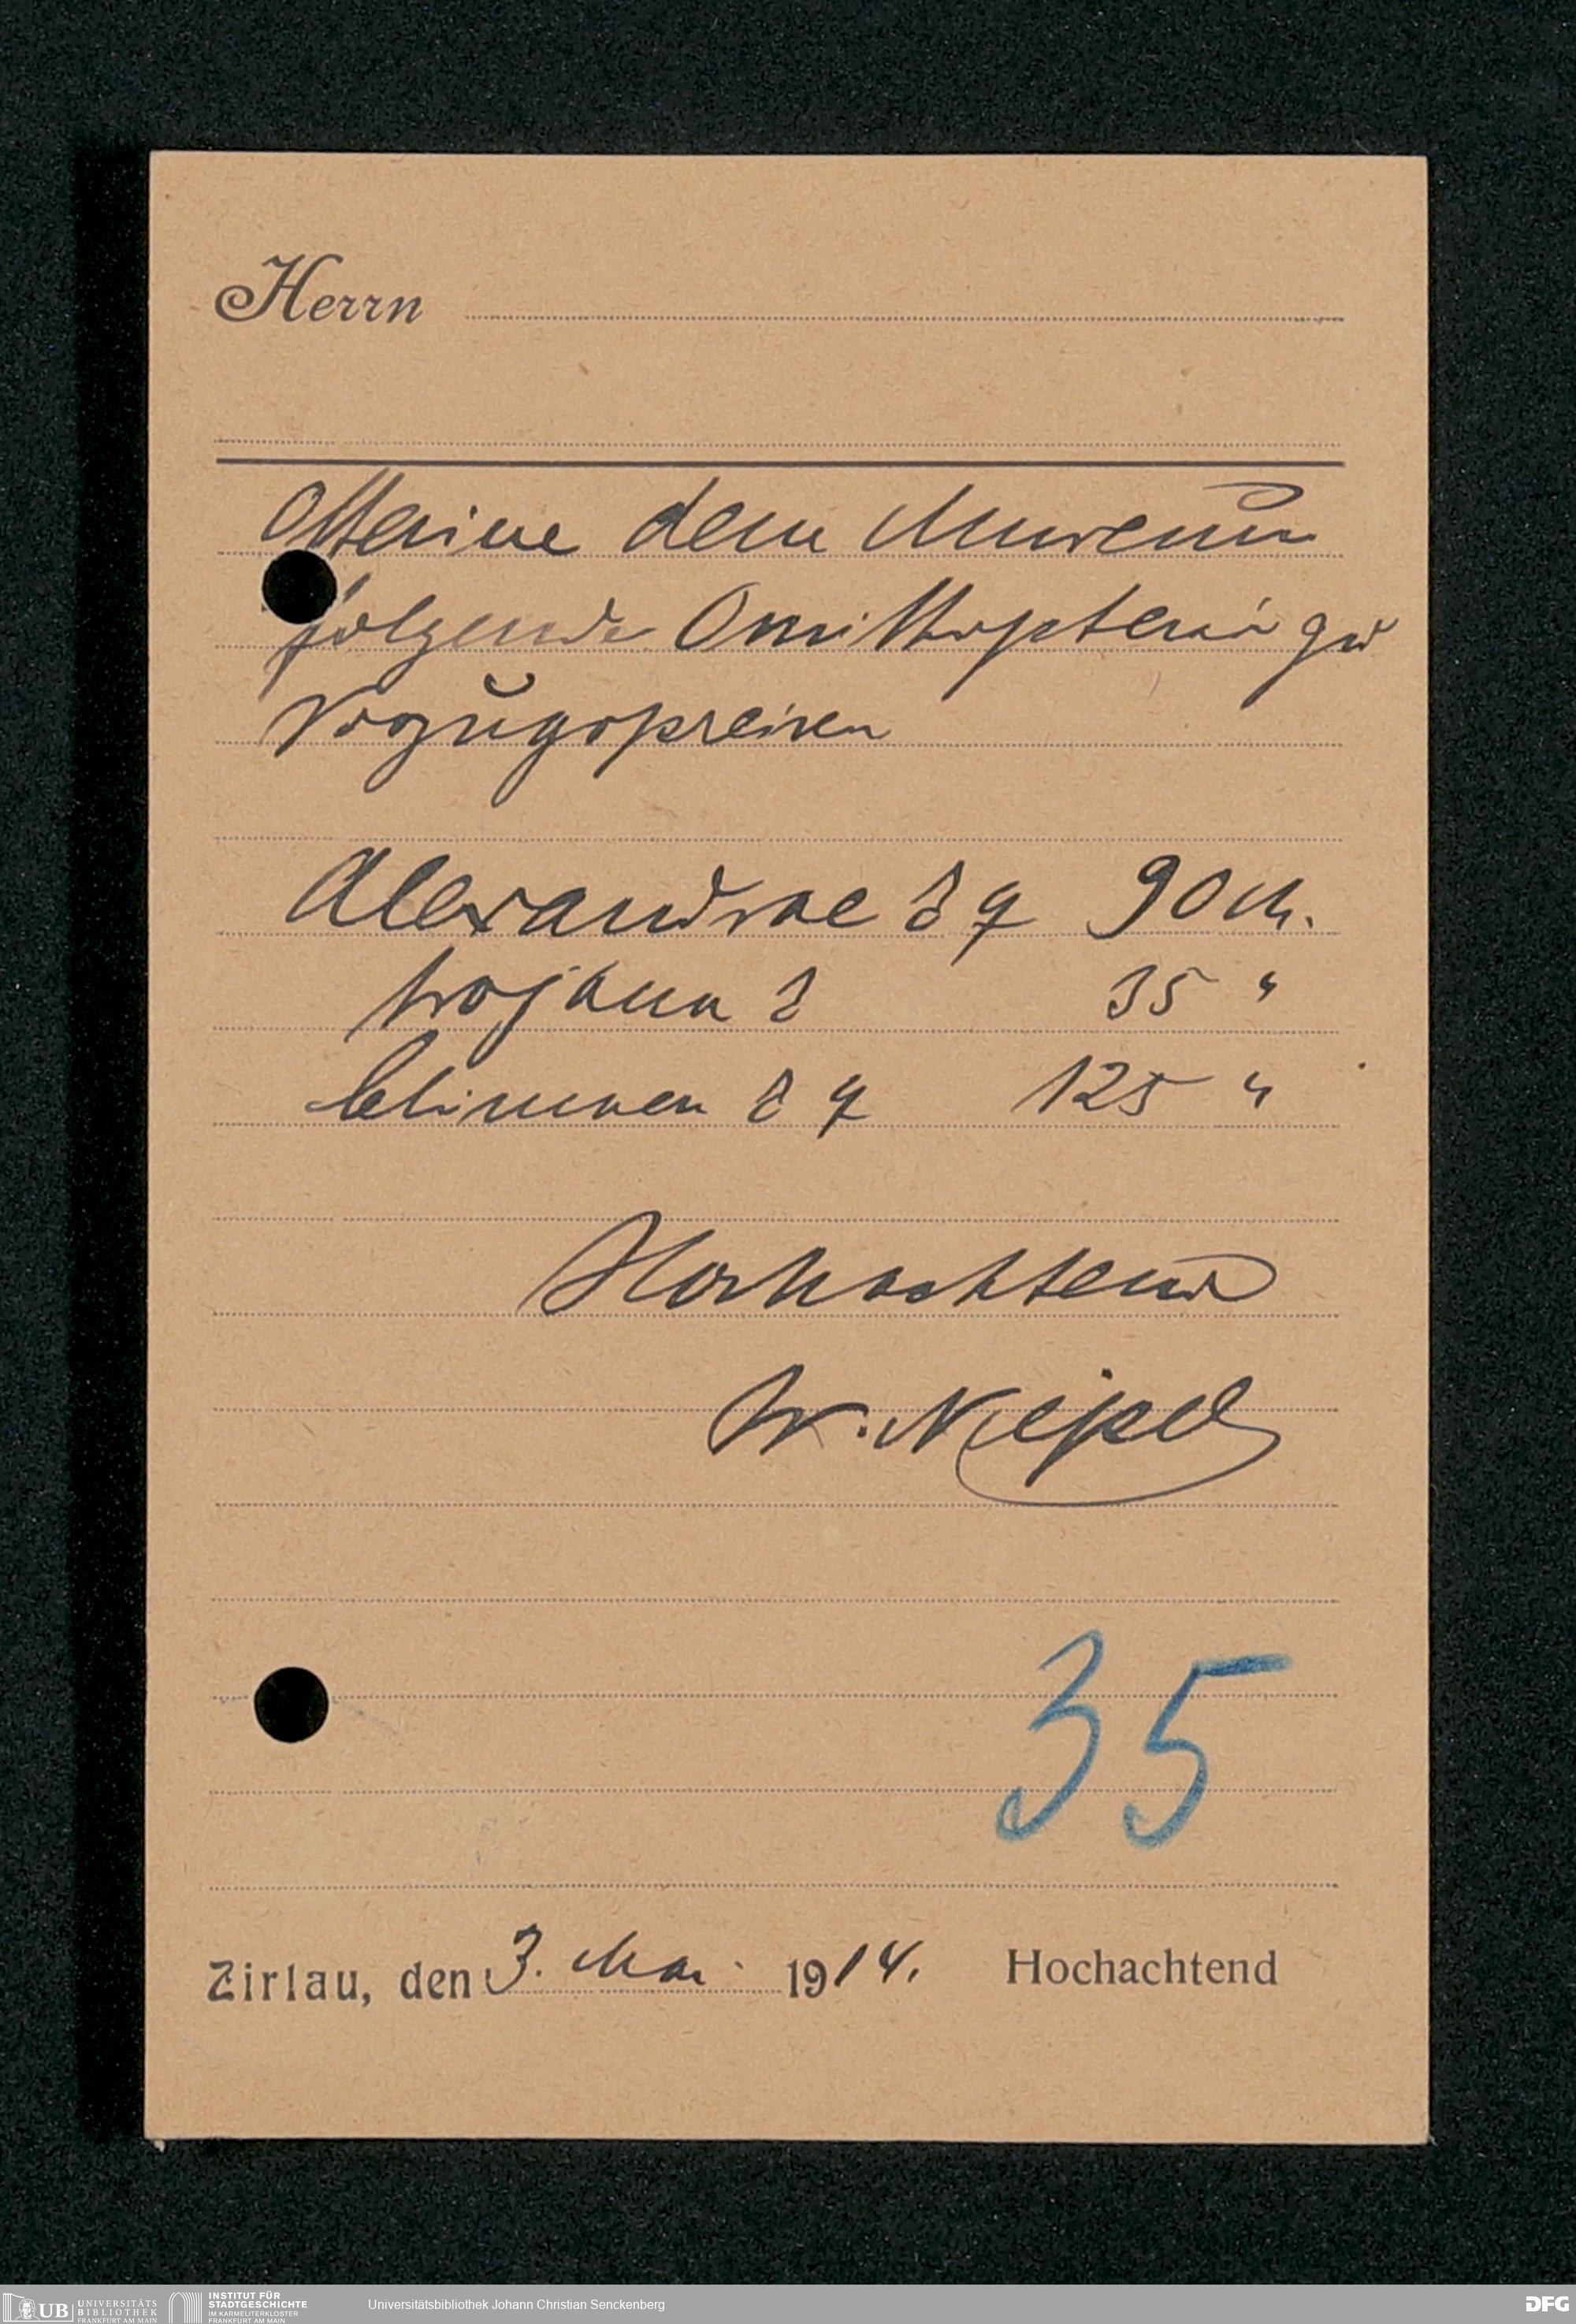 Herrn
Offeriere dem Museum
folgende Ornithoptera zu
Vorzugspreisen
Alexandrae ♂ ♀ 90 M.
trojana ♂ 35 "
chimaera ♂ ♀ 125 "
Hochachtend
W. Niepelt
35
Zirlau, den 3. Mai 1914. Hochachtend
UB UNIVERSITÄTS BIBLIOTHEK FRANKFURT AM MAIN
INSTITUT FÜR STADTGESCHICHTE IM KARMELITERKLOSTER FRANKFURT AM MAIN
Universitätsbibliothek Johann Christian Senckenberg
DFG